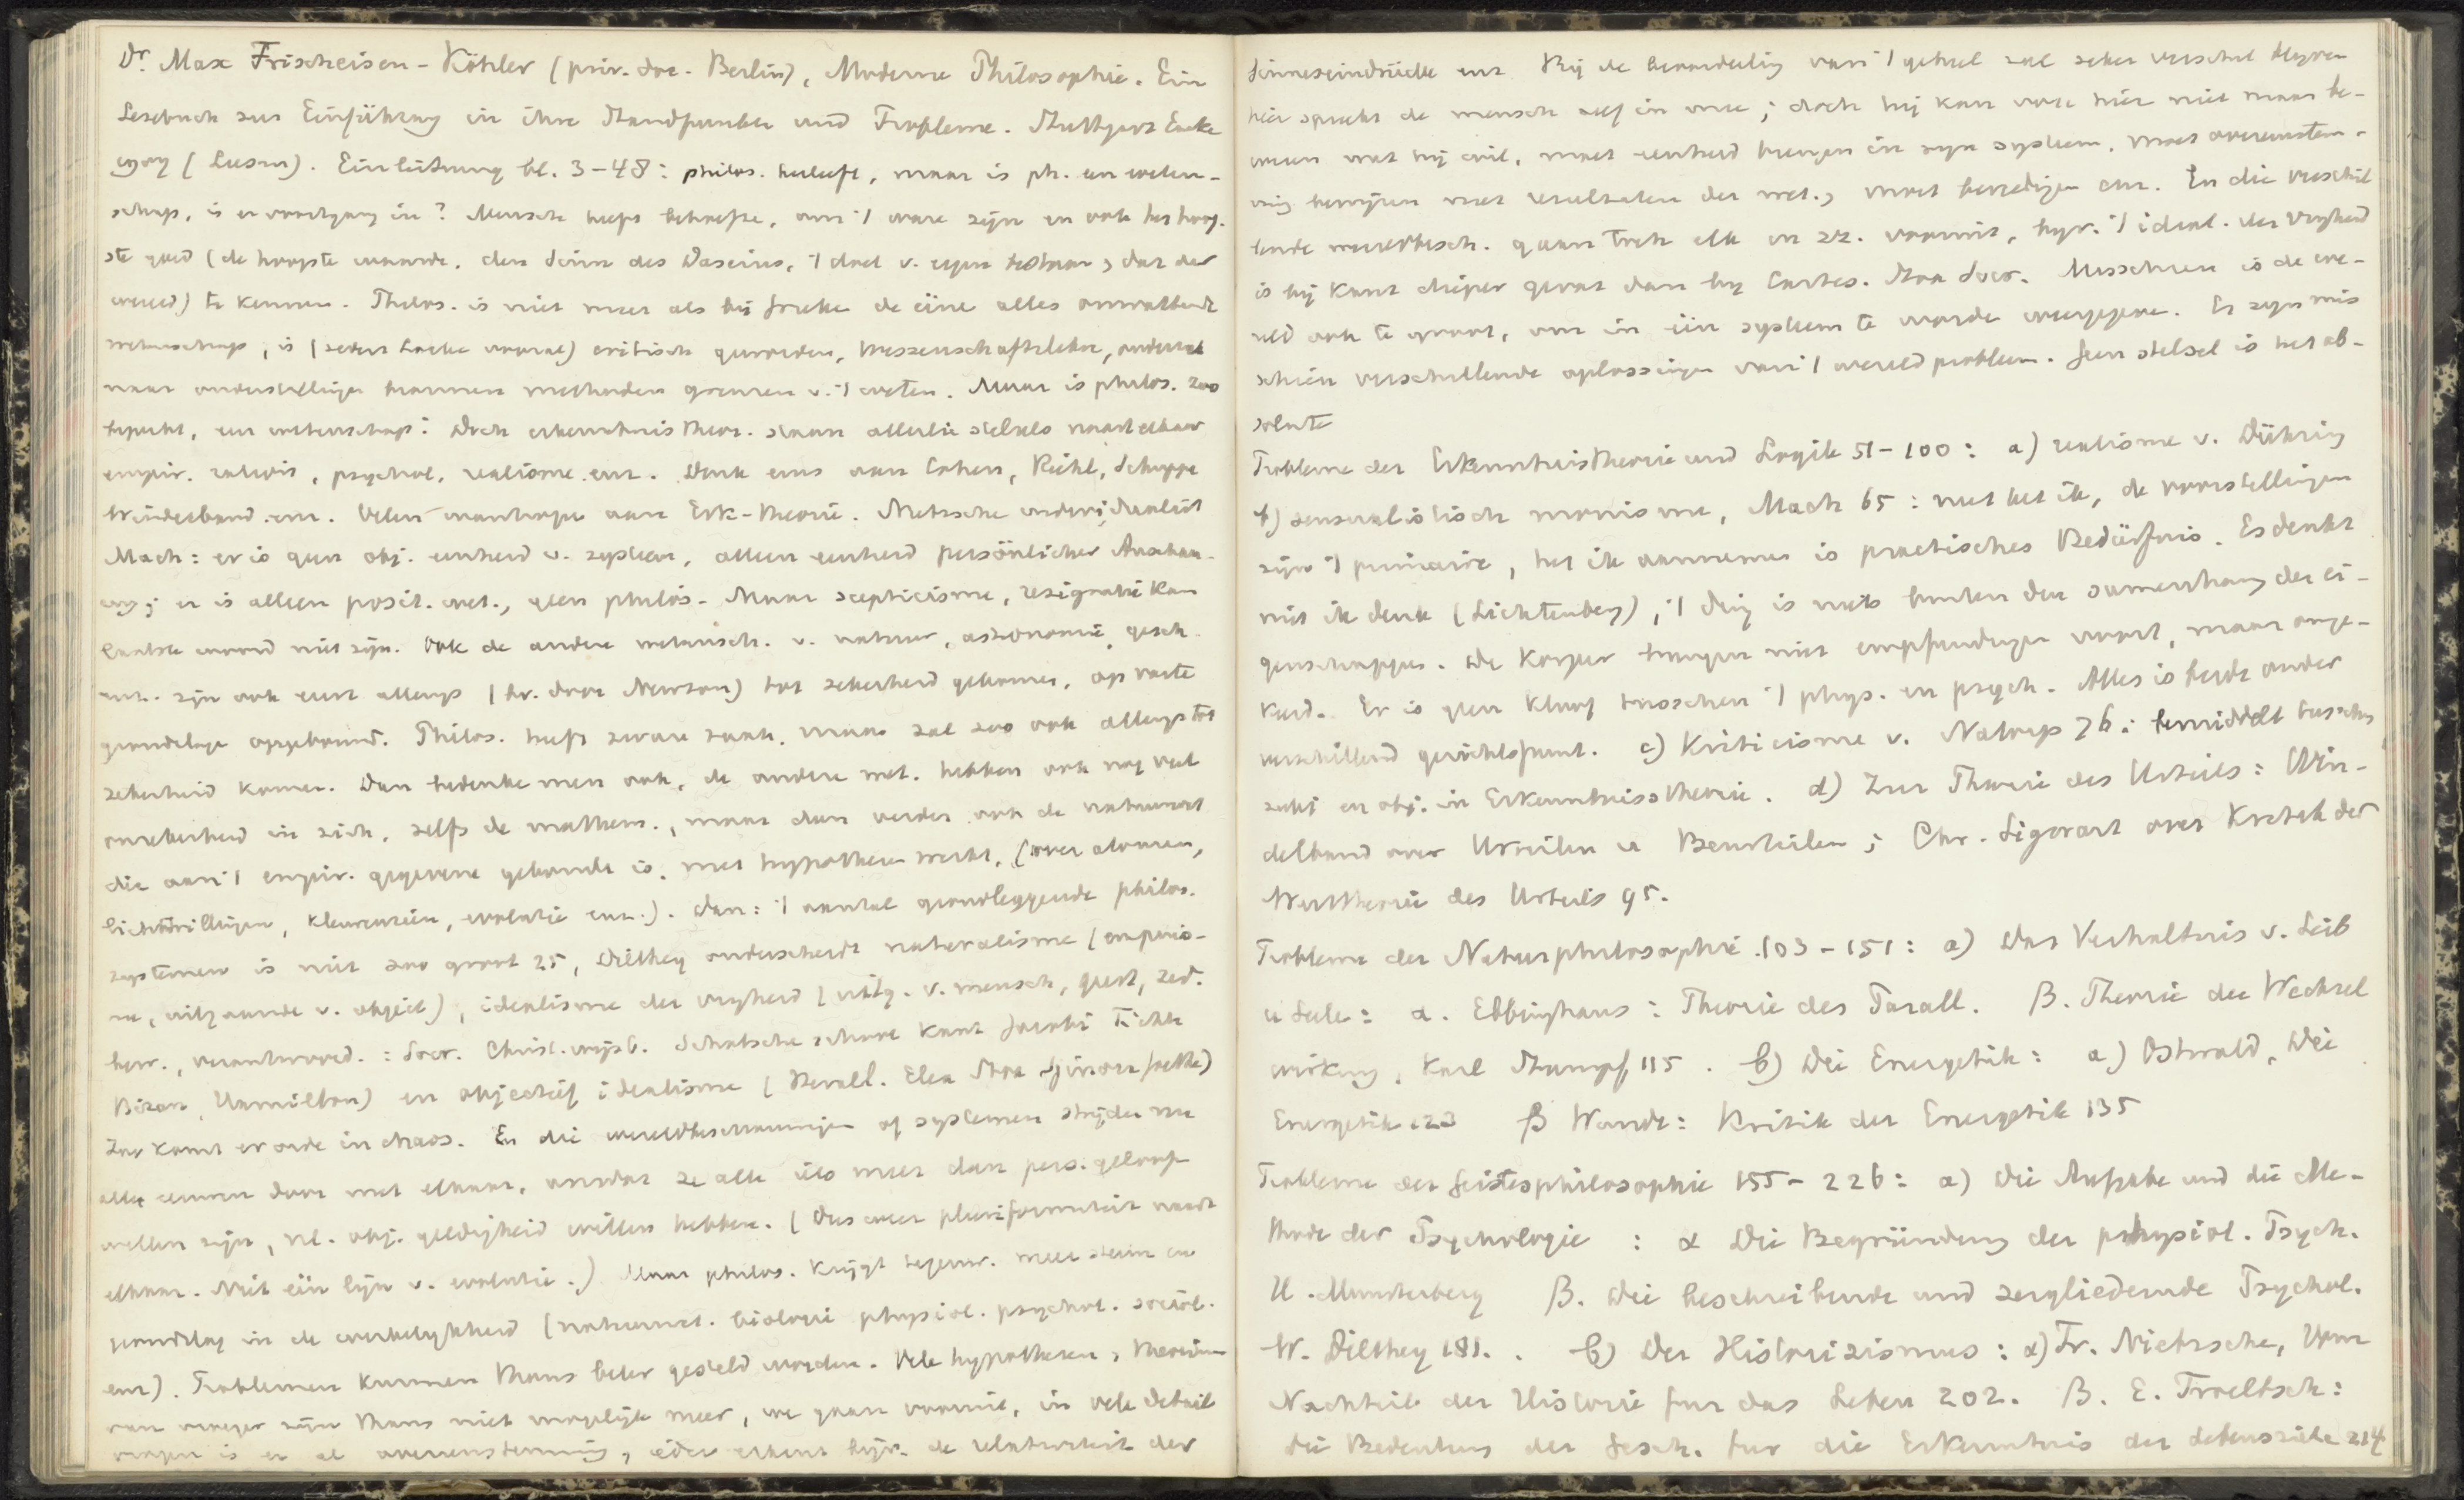 Dr. Max Frischeisen-Köhler (priv. doc. Berlin), Moderne Philosophie. Ein
Lesebuch zur Einführung in ihre Standpunkte und Probleme. Stuttgart Enke
1907 (Leesm). Einleitung bl. 3-48: philos. herleeft, maar is ph. een weten-
schap, is er voortgang in? Mensch heeft behoefte, om 't ware zijn en ook het hoog-
ste goed (de hoogste waarde, den Sinn des Daseins, 't doel v. eigen bestaan, dat der
wereld) te kennen. Philos. is niet meer als bij Grieken de eine alles omvattende
wetenschap, is (sedert Locke vooral) critisch geworden, Wissenschaftslehre, onderzoek
naar onderstellingen bronnen methoden grenzen v. 't weten. Maar is philos. zoo
beperkt, een wetenschap? Doch erkenntnistheor. staan allerlei stelsels naast elkaar
empir. ration, psychol. realisme enz. Denk eens aan Cohen, Riehl, Schuppe
Windelband enz. Velen wanhopen aan Erk-theorie. Nietzsche individualist
Mach: er is geen obj. eenheid v. systeem, alleen eenheid persönlicher Anschau-
ung; er is alleen posit. wet., geen philos. Maar scepticisme, resignatie kan
laatste woord niet zijn. Ook de andere wetensch. v. natuur, astronomie, gesch.
enz. zijn ook eerst allengs (bv. door Newton) tot zekerheid gekomen, op vaste
grondslage opgebouwd. Philos. heeft zware taak, maar zal zoo ook allengs tot
zekerheid komen. Dan bedenke men ook, de andere wet. hebben ook nog veel
onzekerheid in zich, zelfs de mathem., maar dan verder ook de natuurwet
die aan 't empir. gegevene gebonden is, met hypothesen werkt, (over atomen,
lichttrillingen, kleurenzien, evolutie enz.). Dan: 't aantal grondleggende philos.
systemen is niet zoo groot 25, Dilthey onderscheidt naturalisme (empiris-
me, uitgaande v. object), idealisme der vrijheid (uitg. v. mensch, geest, zed.
bew., verantwoord.: Socr. Christ. wijsb. Schotsche school Kant Jacobi Fichte
Biran, Hamilton) en objectief idealisme (Heracl. Elea Stoa Spinoza Goethe)
Zoo komt er orde in chaos. En die wereldbeschouwingen of systemen strijden nu
alle eeuwen door met elkaar, omdat ze alle iets meer dan pers. geloof
willen zijn, nl. obj. geldigheid willen hebben. (Dus meer pluriformiteit naast
elkaar. Niet één lijn v. evolutie.) Maar philos. krijgt tegenw. meer steun en
grondslag in de werkelijkheid (natuurwet. biologie physiol. psychol. sociol.
enz). Problemen kunnen thans beter gesteld worden. Vele hypothesen, theorieën
van vroeger zijn thans niet mogelijk meer, we gaan vooruit, in vele detail
vragen is er al overeenstemming, ieder erkent bijv. de relativiteit der
Sinneseindrücke enz. Bij de beoordeeling van 't geheel zal zeker verschil blijven
hier spreekt de mensch zelf in mee; doch hij kan voor hier niet maar be-
weren wat hij wil, moet eenheid brengen in zijn systeem, moet overeenstem-
ming bewijzen met resultaten der wet., moet bevredigen enz. En die verschil
lende wereldbesch. gaan toch elk in zr. vooruit, bijv. 't ideal. der vrijheid
is bij Kant dieper gevat dan bij Cartes. Stoa Socr. Misschien is de we-
reld ook te groot, om in één systeem te worden weergegeven. Er zijn mis
schien verschillende oplossingen van 't wereldprobleem. Geen stelsel is het ab-
solute
Probleme der Erkenntnistheorie und Logik 51-100: a) realisme v. Dühring
b) sensualistisch monisme, Mach 65: niet het ik, de voorstellingen
zijn 't primaire, het ik aannemen is practisches Bedürfnis. Es denkt
niet ik denk (Lichtenberg), 't ding is niets buiten den samenhang der ei-
genschappen. De Körper brengen niet empfindungen voort, maar omge-
keerd. Er is geen kloof tusschen 't phys. en psych. Alles is beide onder
verschillend gezichtspunt. c) Kriticisme v. Natorp 76: bemiddelt tusschen
subj en obj. in Erkenntnisstheorie. d) Zur Theorie des Urteils: Win-
delband over Urteilen u Beurteilen; Chr. Sigwart over Kritik der
Werttheorie des Urteils 95.
Probleme der Naturphilosophie 103-151: a) Das Verhaltnis v. Leib
u Seele: α. Ebbinghaus: Theorie des Parall. β. Theorie der Wechsel
wirkung, Karl Stumpf 115. b) Die Energetik: α) Ostwald, Die
Energetik 123 β Wundt: Kritik der Energetik 135
Probleme der Geistesphilosophie 155-226: a) Die Aufgabe und die Me-
thode der Psychologie: α Die Begründung der physiol. Psych.
H. Munsterberg β. Die beschreibende und zergliedernde Psychol.
W. Dilthey 181. b) Der Historizismus: α) Fr. Nietzsche, Vom
Nachteil der Historie fur das Leben 202. β. E. Troeltsch:
Die Bedeutung der Gesch. fur die Erkenntnis der Lebensziele 214